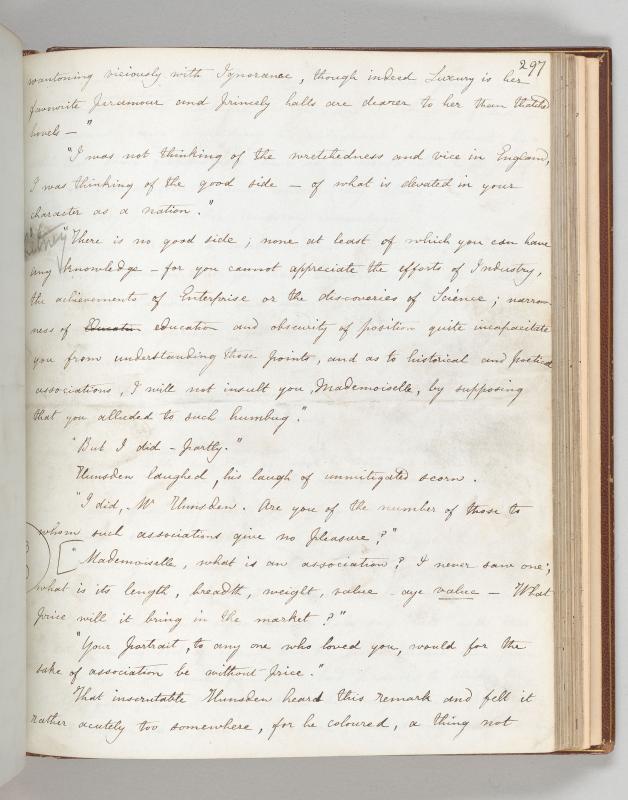 297
wantoning viciously with Ignorance, though indeed Luxury is her
favourite Paramour and Princely halls are dearer to her than thatched
hovels — "
"I was not thinking of the wretchedness and vice in England,
I was thinking of the good side — of what is elevated in your
character as a nation."
"There is no good side; none at least of which you can have
any knowledge — for you cannot appreciate the efforts of Industry,
the achievements of Enterprise or the discoveries of Science; narrow-
ness of education and obscurity of position quite incapacitate
you from understanding those points, and as to historical and poetical
associations, I will not insult you, Mademoiselle, by supposing
that you alluded to such humbug".
"But I did — partly."
Hunsden laughed, his laugh of unmitigated scorn.
"I did, Mr Hunsden. Are you of the number of those to
whom such associations give no pleasure?"
"Mademoiselle, what is an association? I never saw one;
what is its length, breadth, weight, value — aye value — What
price will it bring in the market?"
"Your portrait, to any one who loved you, would for the
sake of association be without price."
That inscrutable Hunsden heard this remark and felt it
rather acutely too somewhere, for he coloured, a thing not